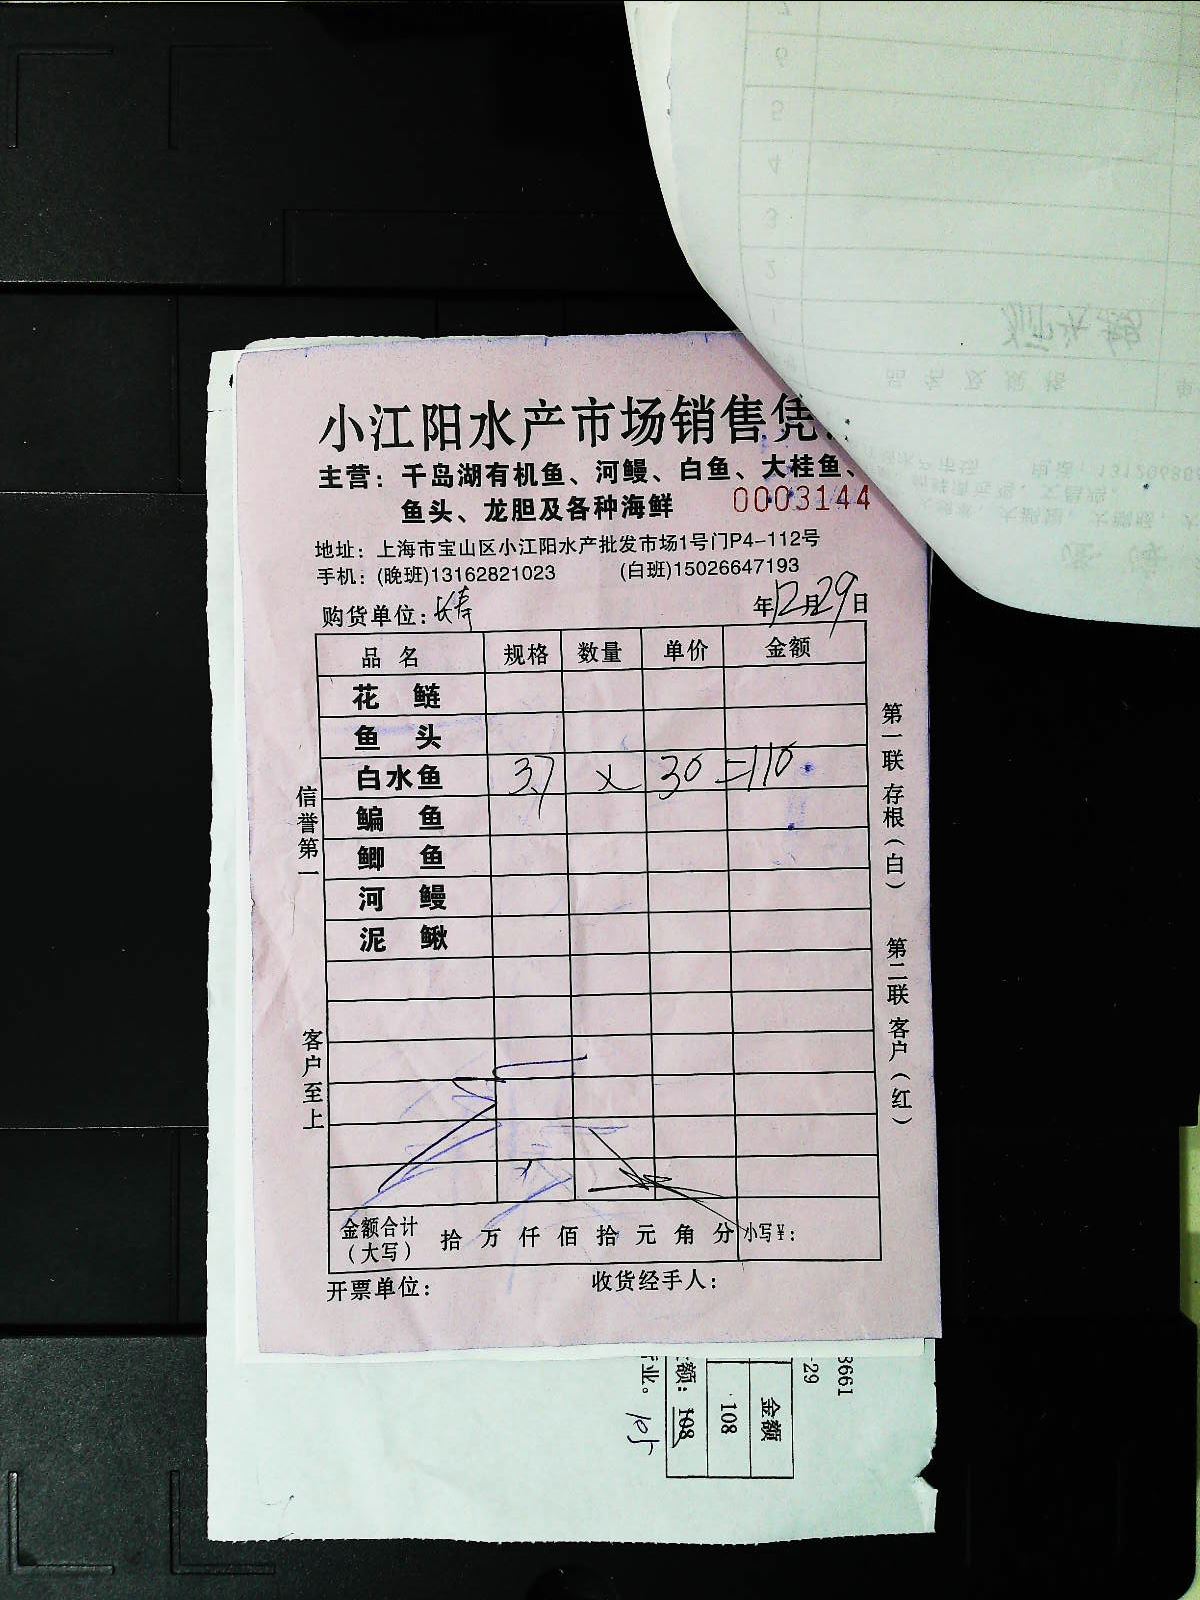 小江阳水产市场销售凭
主营：千岛湖有机鱼、河鳗、白鱼、大桂鱼、
鱼头、龙胆及各种海鲜
0003144
地址：上海市宝山区小江阳水产批发市场1号门P4-112号
手机：(晚班)13162821023 (白班)15026647193
购货单位：长寿 年12月29日
品名 规格 数量 单价 金额
花鲢
鱼头
白水鱼 3.7 × 30 =110
鳊鱼
鲫鱼
河鳗
泥鳅
金额合计（大写） 拾万仟佰拾元角分 小写¥：
开票单位： 收货经手人：
信誉第一 客户至上
第一联 存根（白） 第二联 客户（红）
3661
-29
金额
108
额：108
业。
105
7
6
5
4
3
2
1
品名及规格